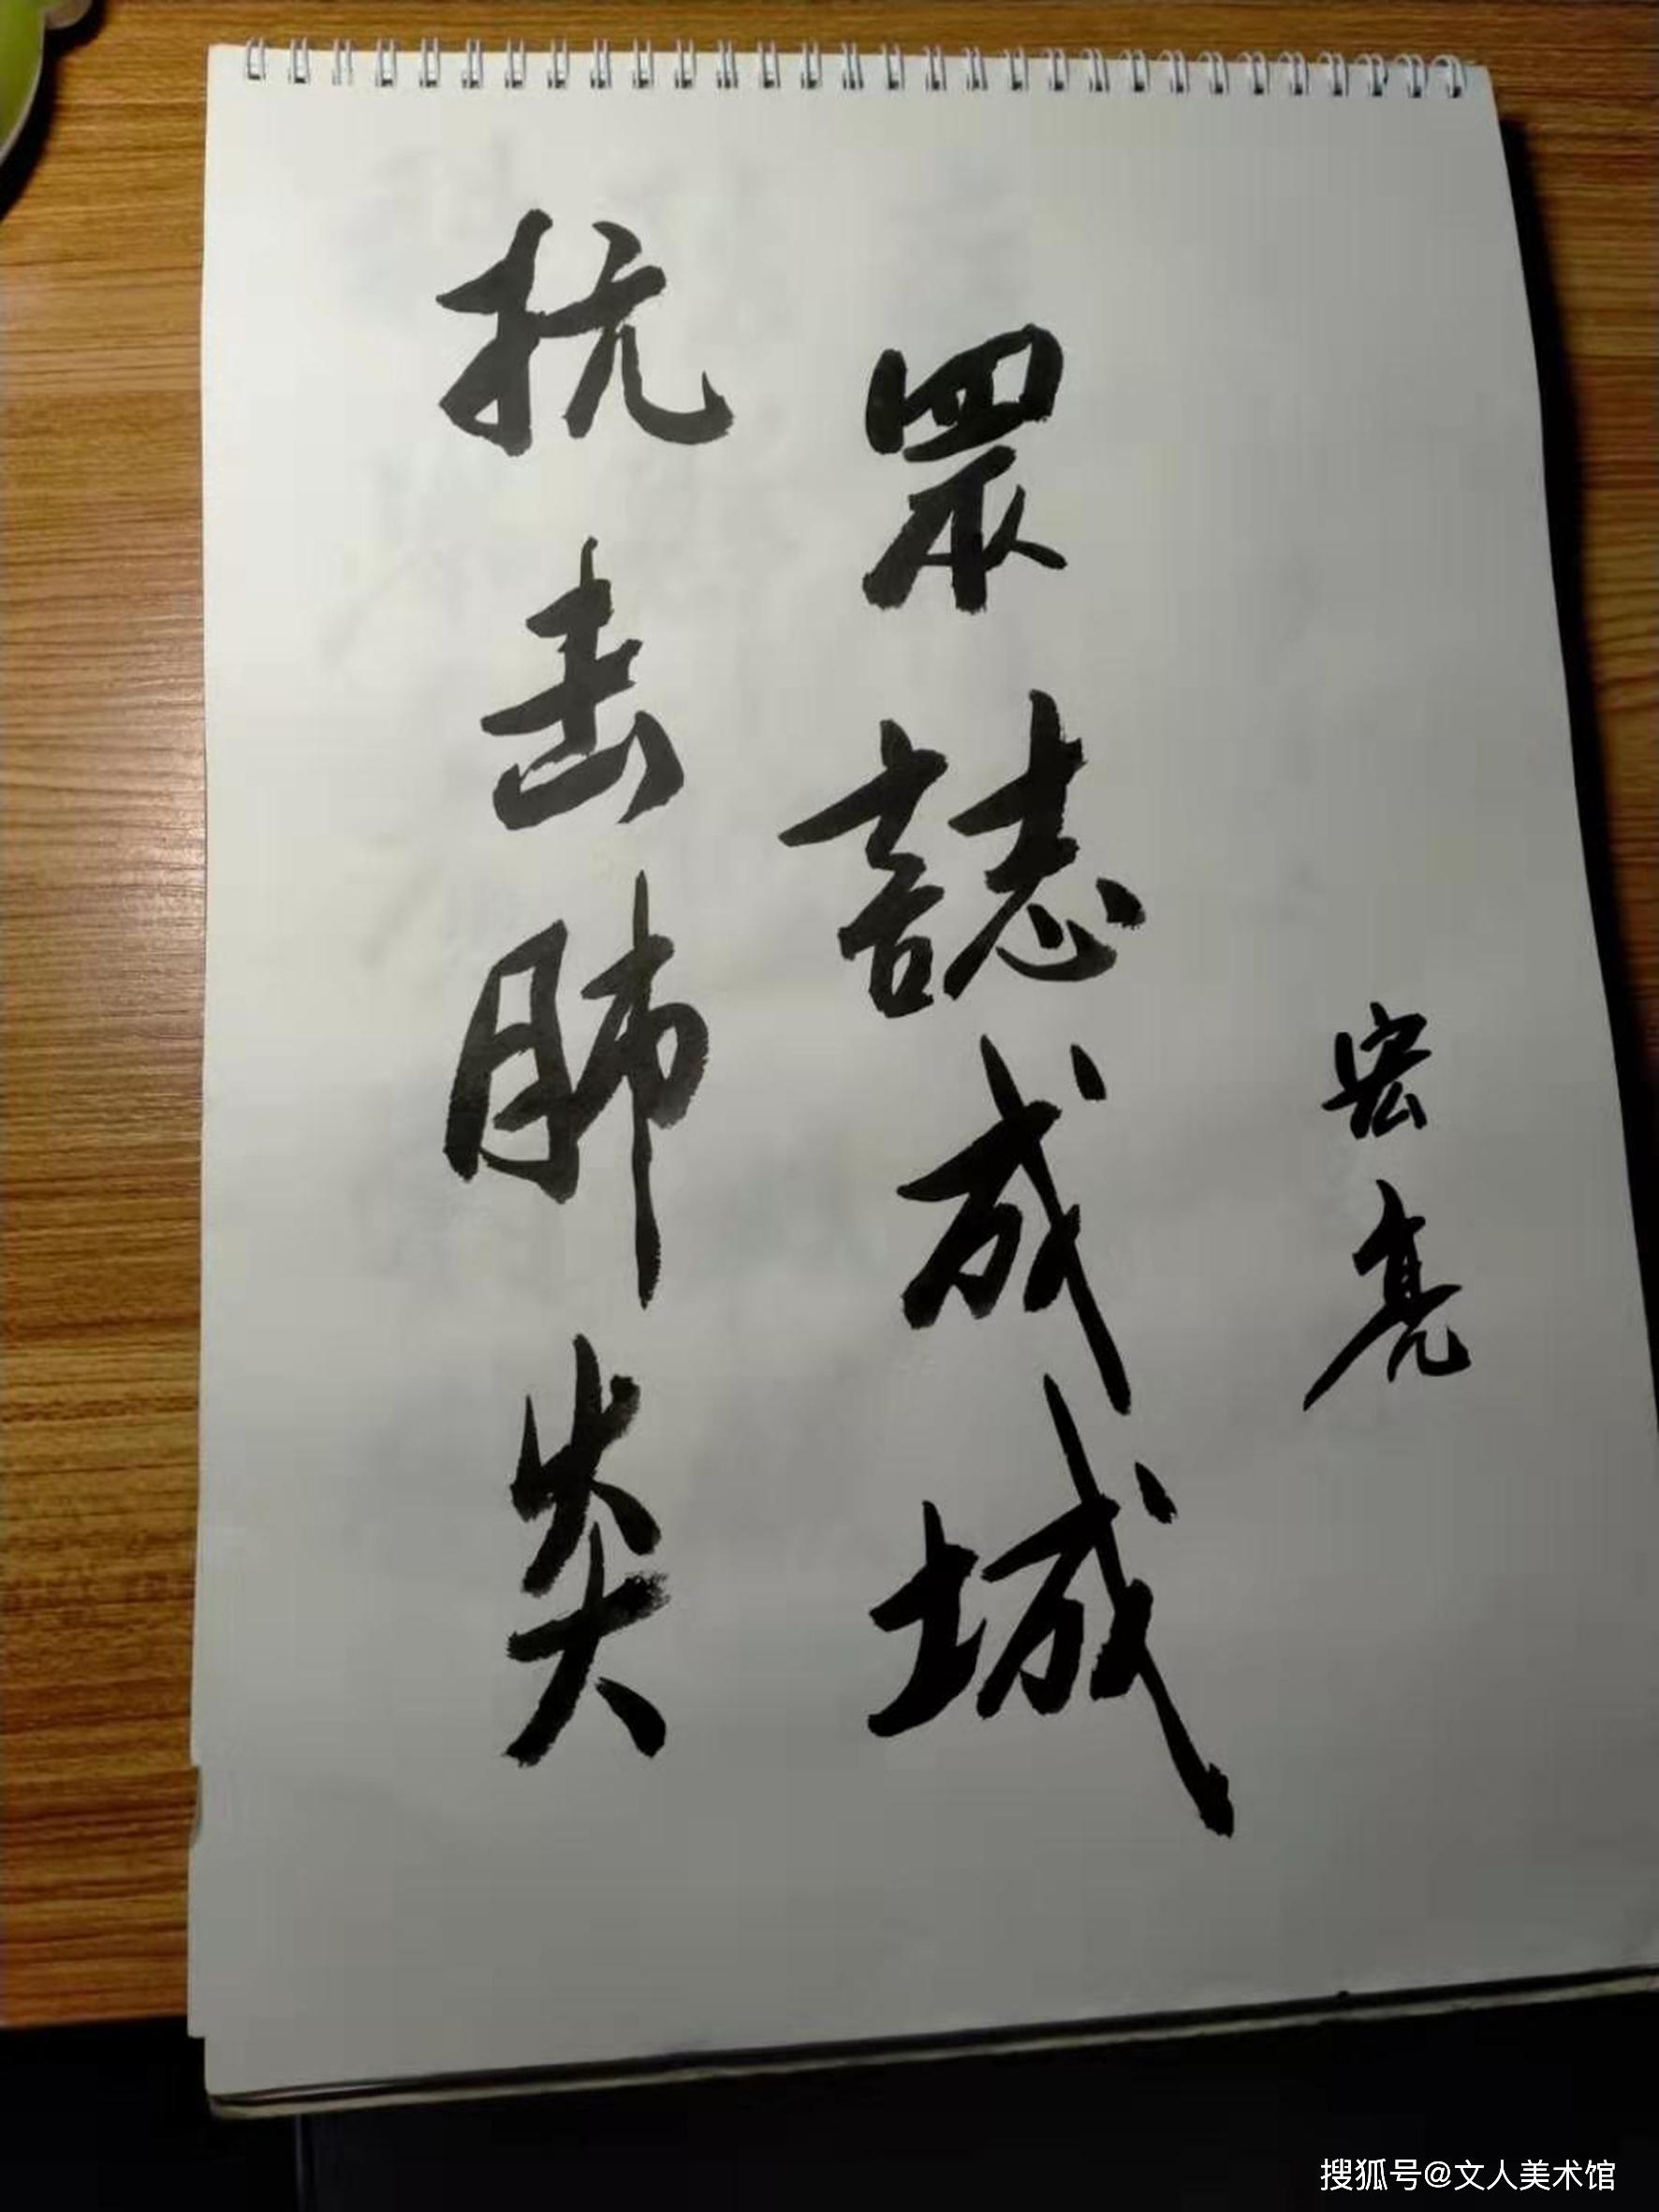 抗击肺炎
眾誌成城
宏亮
搜狐号@文人美术馆